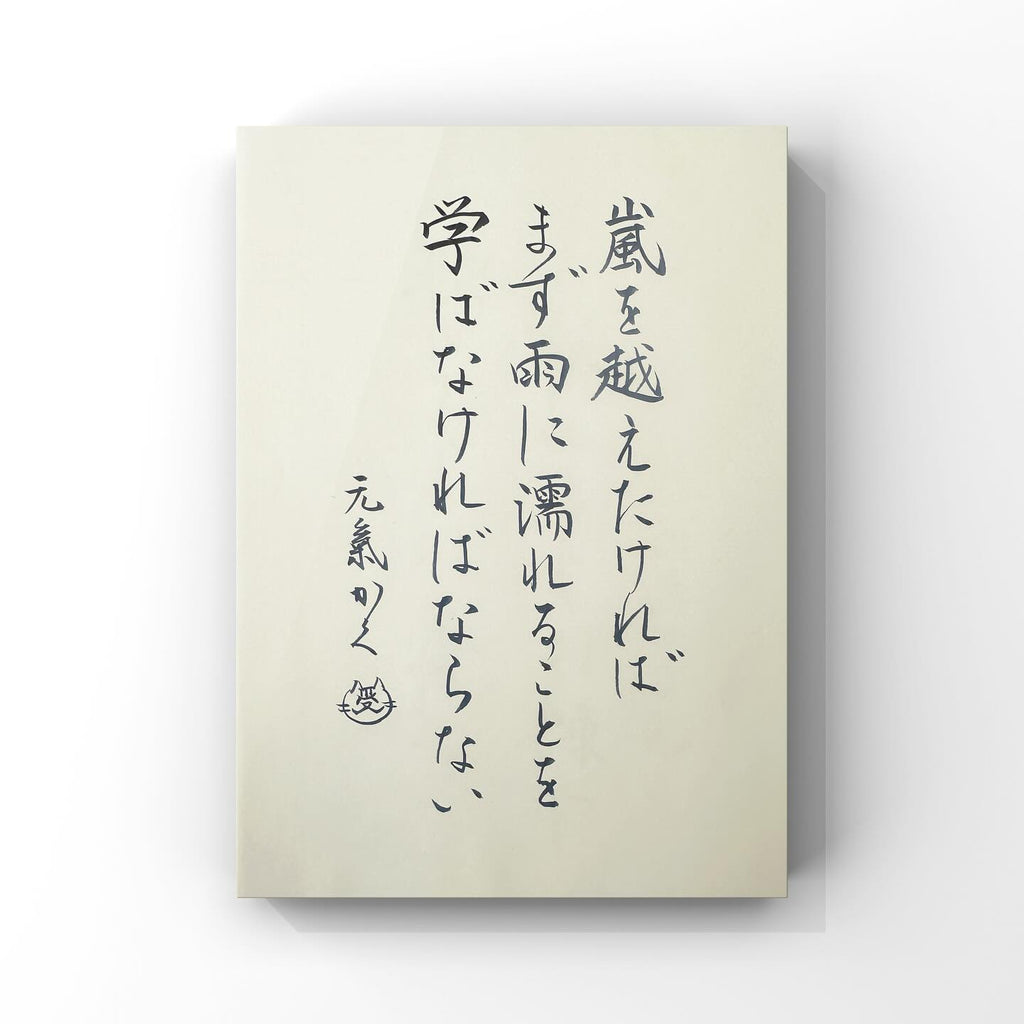 嵐を越えたければ
まず雨に濡れることを
学ばなければならない
元氣かく
受